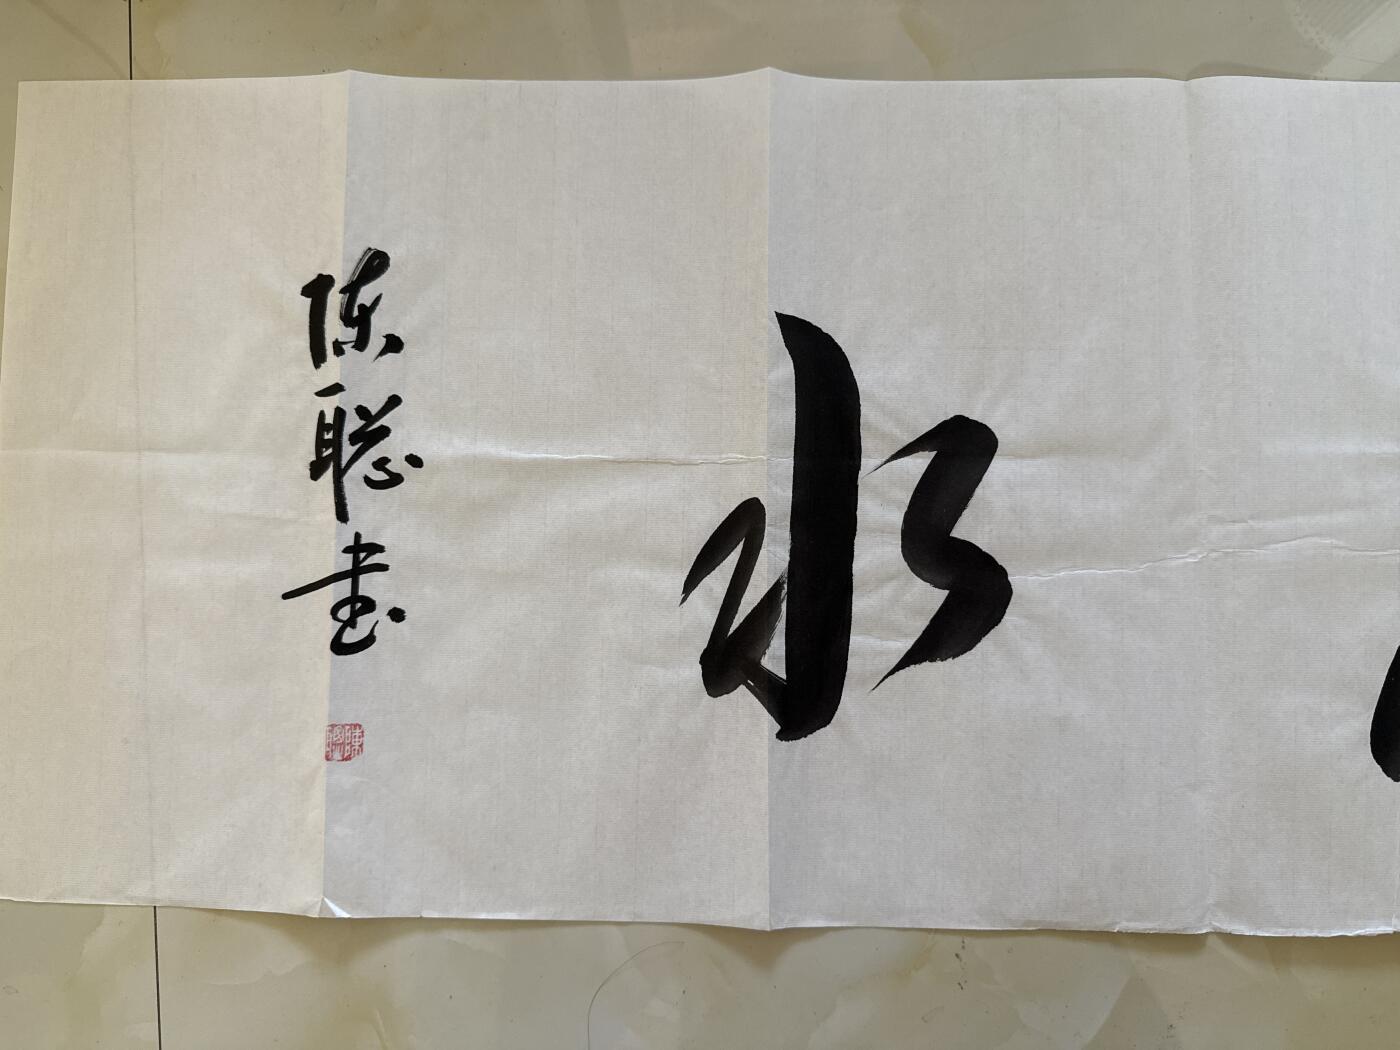 水
陈聪书
陳聰